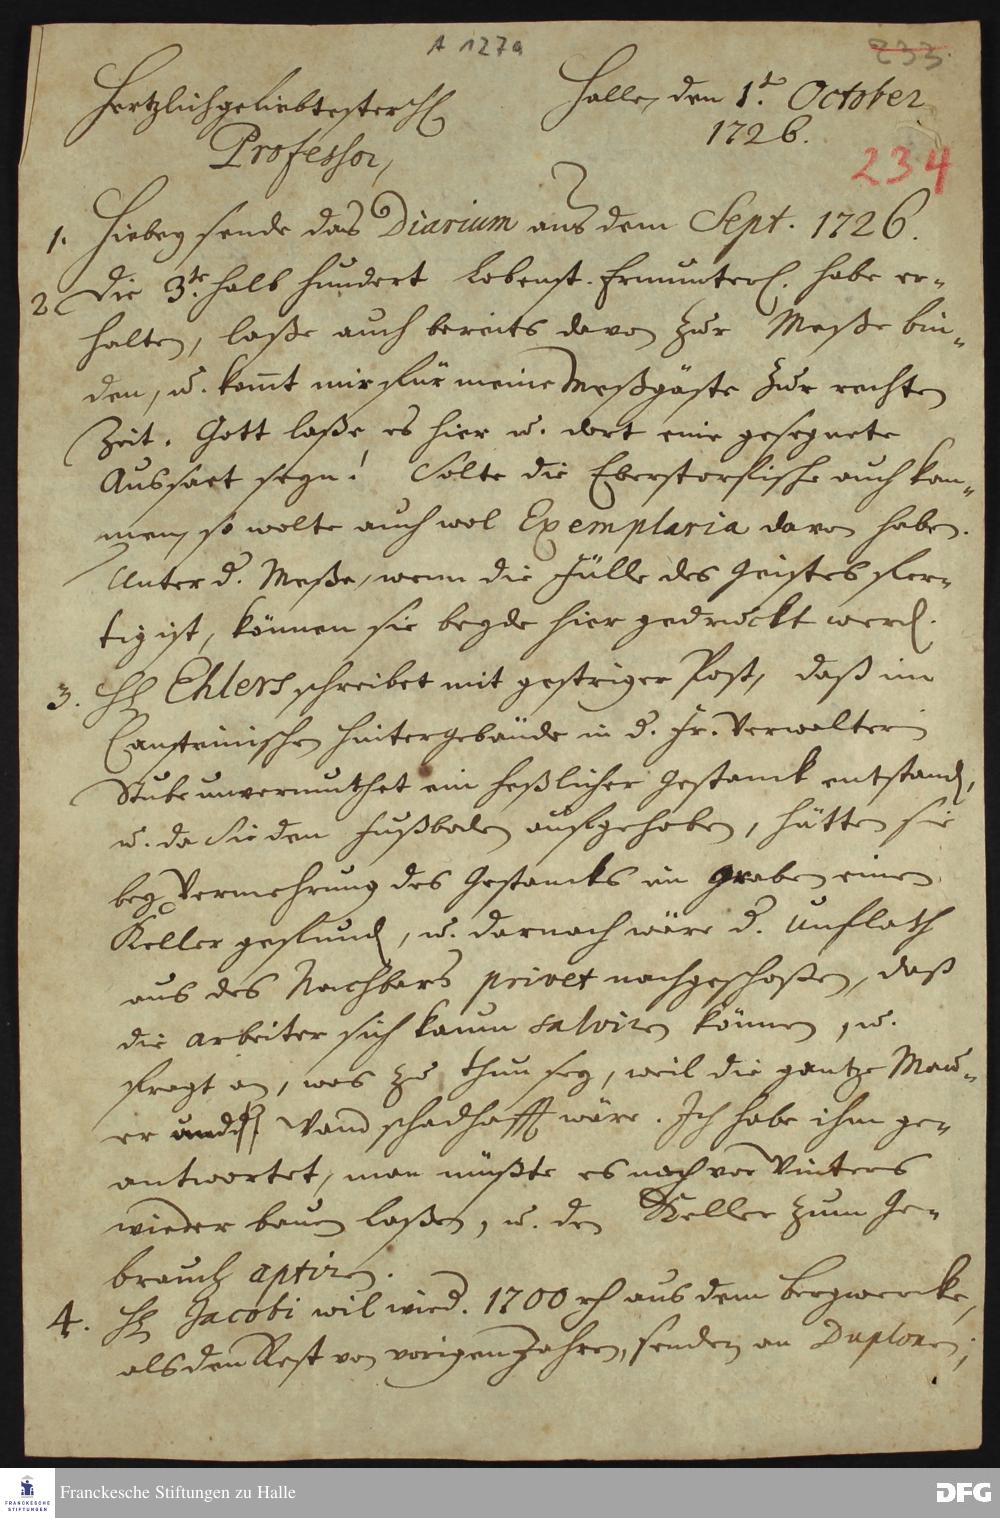 A 127a
233.
Halle, den 1t. October
1726.
234
Hertzlichgeliebtester H
Professor,
1. Hiebey sende das Diarium aus dem Sept. 1726.
2. Die 3te. halb hundert Lobenst. Ermunter. habe er-
halten, laße auch bereits davon zur Meße bin-
den, u. komt mir für meine Meßgäste zur rechten
Zeit. Gott laße es hier u. dort eine gesegnete
Aussaet seyn! Solte die Eberstorfische auch kom-
men, so wolte auch wol Exemplaria davon haben.
Unter d. Meße, wenn die Fülle des Geistes fer-
tig ist, können sie beyde hier gedruckt werd.
3. H Ehlers schreibet mit gestriger Post, daß im
Cansteinischen Hintergebäude in d. Fr. Verwalterin
Stube unvermuthet ein heßlicher Gestanck entstand,
u. da Sie den Fußboden aufgehoben, hätten sie
bey Vermehrung des Gestancks im graben einen
Keller gefund, u. darnach wäre d. Unflath
aus des Nachbars privet nachgeschoßen, daß
die arbeiter sich kaum salviren können, u.
fragt an, was zu thun sey, weil die gantze Mau-
er und Wand schadhafft wäre. Ich habe ihm ge-
antwortet, man müßte es noch vor Winters
wieder bauen laßen, u. den Keller zum Ge-
brauch aptiren.
4. H Jacobi wil wied. 1700 rh aus dem Bergwercke,
als den Rest von vorigen Jahren, senden an Duplonen;
Franckesche Stiftungen zu Halle
FRANCKESCHE
STIFTUNGEN
DFG